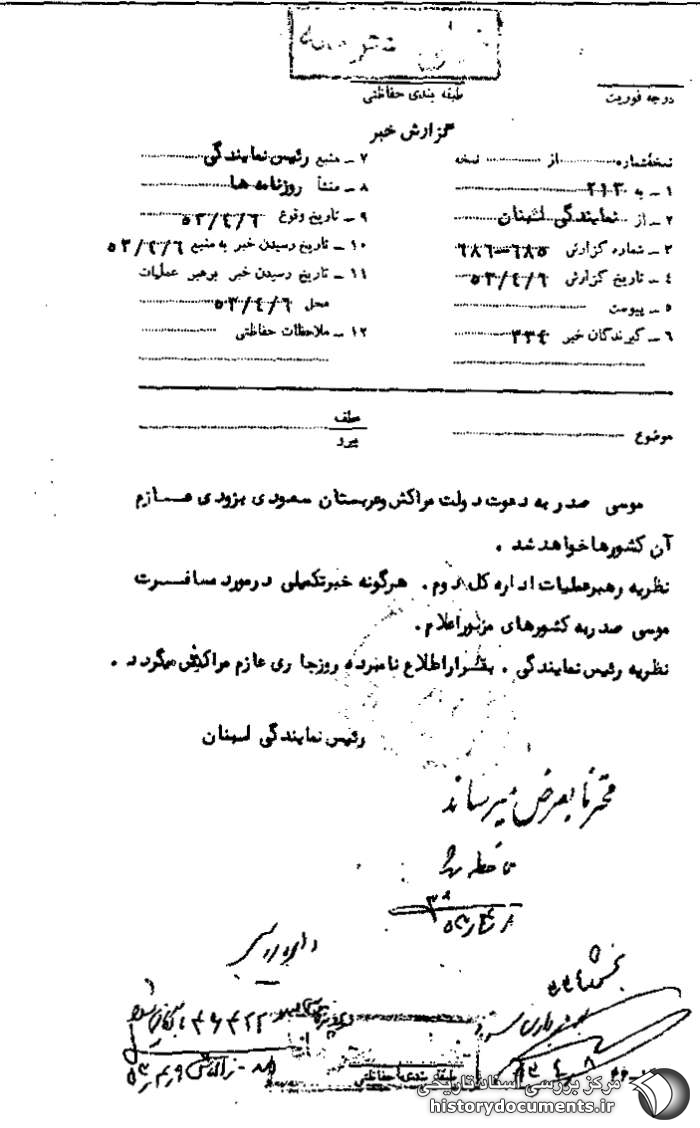 خیلی محرمانه
طبقه بندی حفاظتی
درجه فوریت
گزارش خبر
نسخه شماره .......... از .......... نسخه
۱ ـ به ۲۱۳
۲ ـ از نمایندگی لبنان
۳ ـ شماره گزارش ۶۸۵ـ۶۸۶
۴ ـ تاریخ گزارش ۵۳/۴/۶
۵ ـ پیوست
۶ ـ گیرندگان خبر ۳۳۴
۷ ـ منبع رئیس نمایندگی
۸ ـ منشأ روزنامه ها
۹ ـ تاریخ وقوع ۵۳/۴/۶
۱۰ ـ تاریخ رسیدن خبر به منبع ۵۳/۴/۶
۱۱ ـ تاریخ رسیدن خبر برهبر عملیات
محل ۵۳/۴/۶
۱۲ ـ ملاحظات حفاظتی
موضوع
عطف
پیرو
موسی صدر به دعوت دولت مراکش وعربستان سعودی بزودی عــازم
آن کشورها خواهد شد .
نظریه رهبرعملیات اداره کل دوم . هرگونه خبرتکمیلی درمورد مسافــرت
موسی صدربه کشورهای مزبوراعلام .
نظریه رئیس نمایندگی . بقراراطلاع نامبرده روزجاری عازم مراکش میگردد .
رئیس نمایندگی لبنان
محترما بعرض میرساند
ملاحظه شد
طبقه بندی حفاظتی
مرکز بررسی اسناد تاریخی
historydocuments.ir